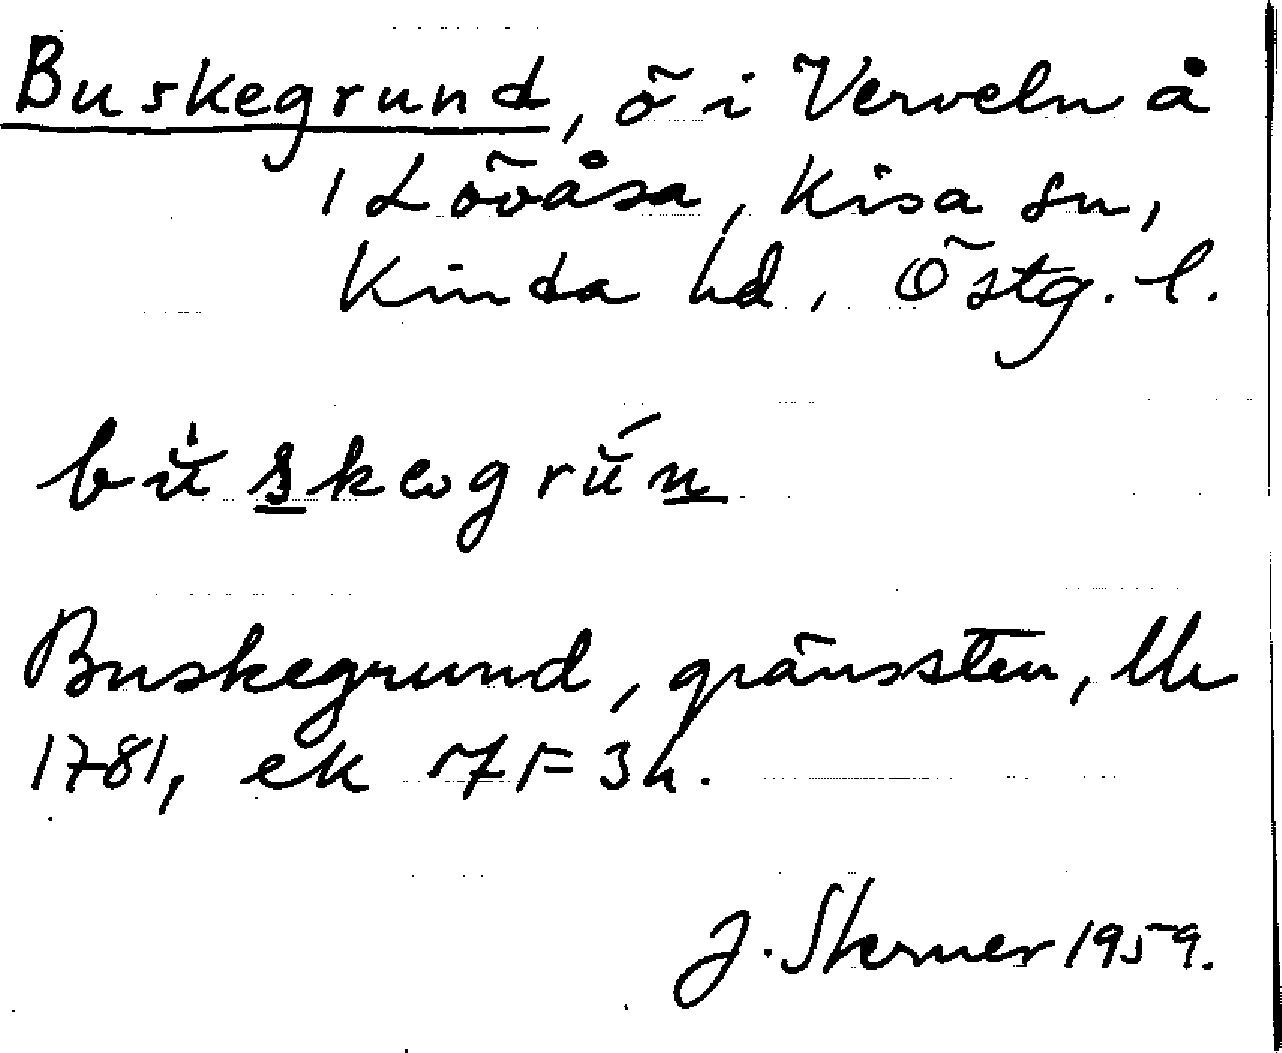 Buskegrund, ö i Verveln å
1 Lövåsa, Kisa sn,
Kinda hd, Östg. l.
bùskegrún
Buskegrund, gränssten, Um
1781, ek 7F3h.
J. Sterner 1959.